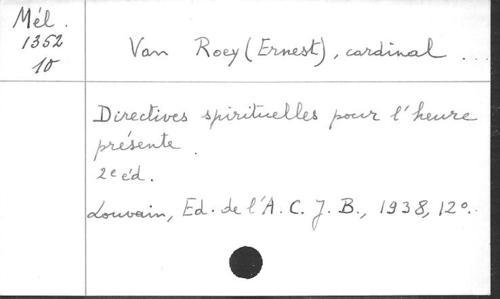 Mél.
1352
10
Van Roey (Ernest), cardinal ...
Directives spirituelles pour l'heure
présente.
2e éd.
Louvain, Ed. de l'A. C. J. B., 1938, 12o.